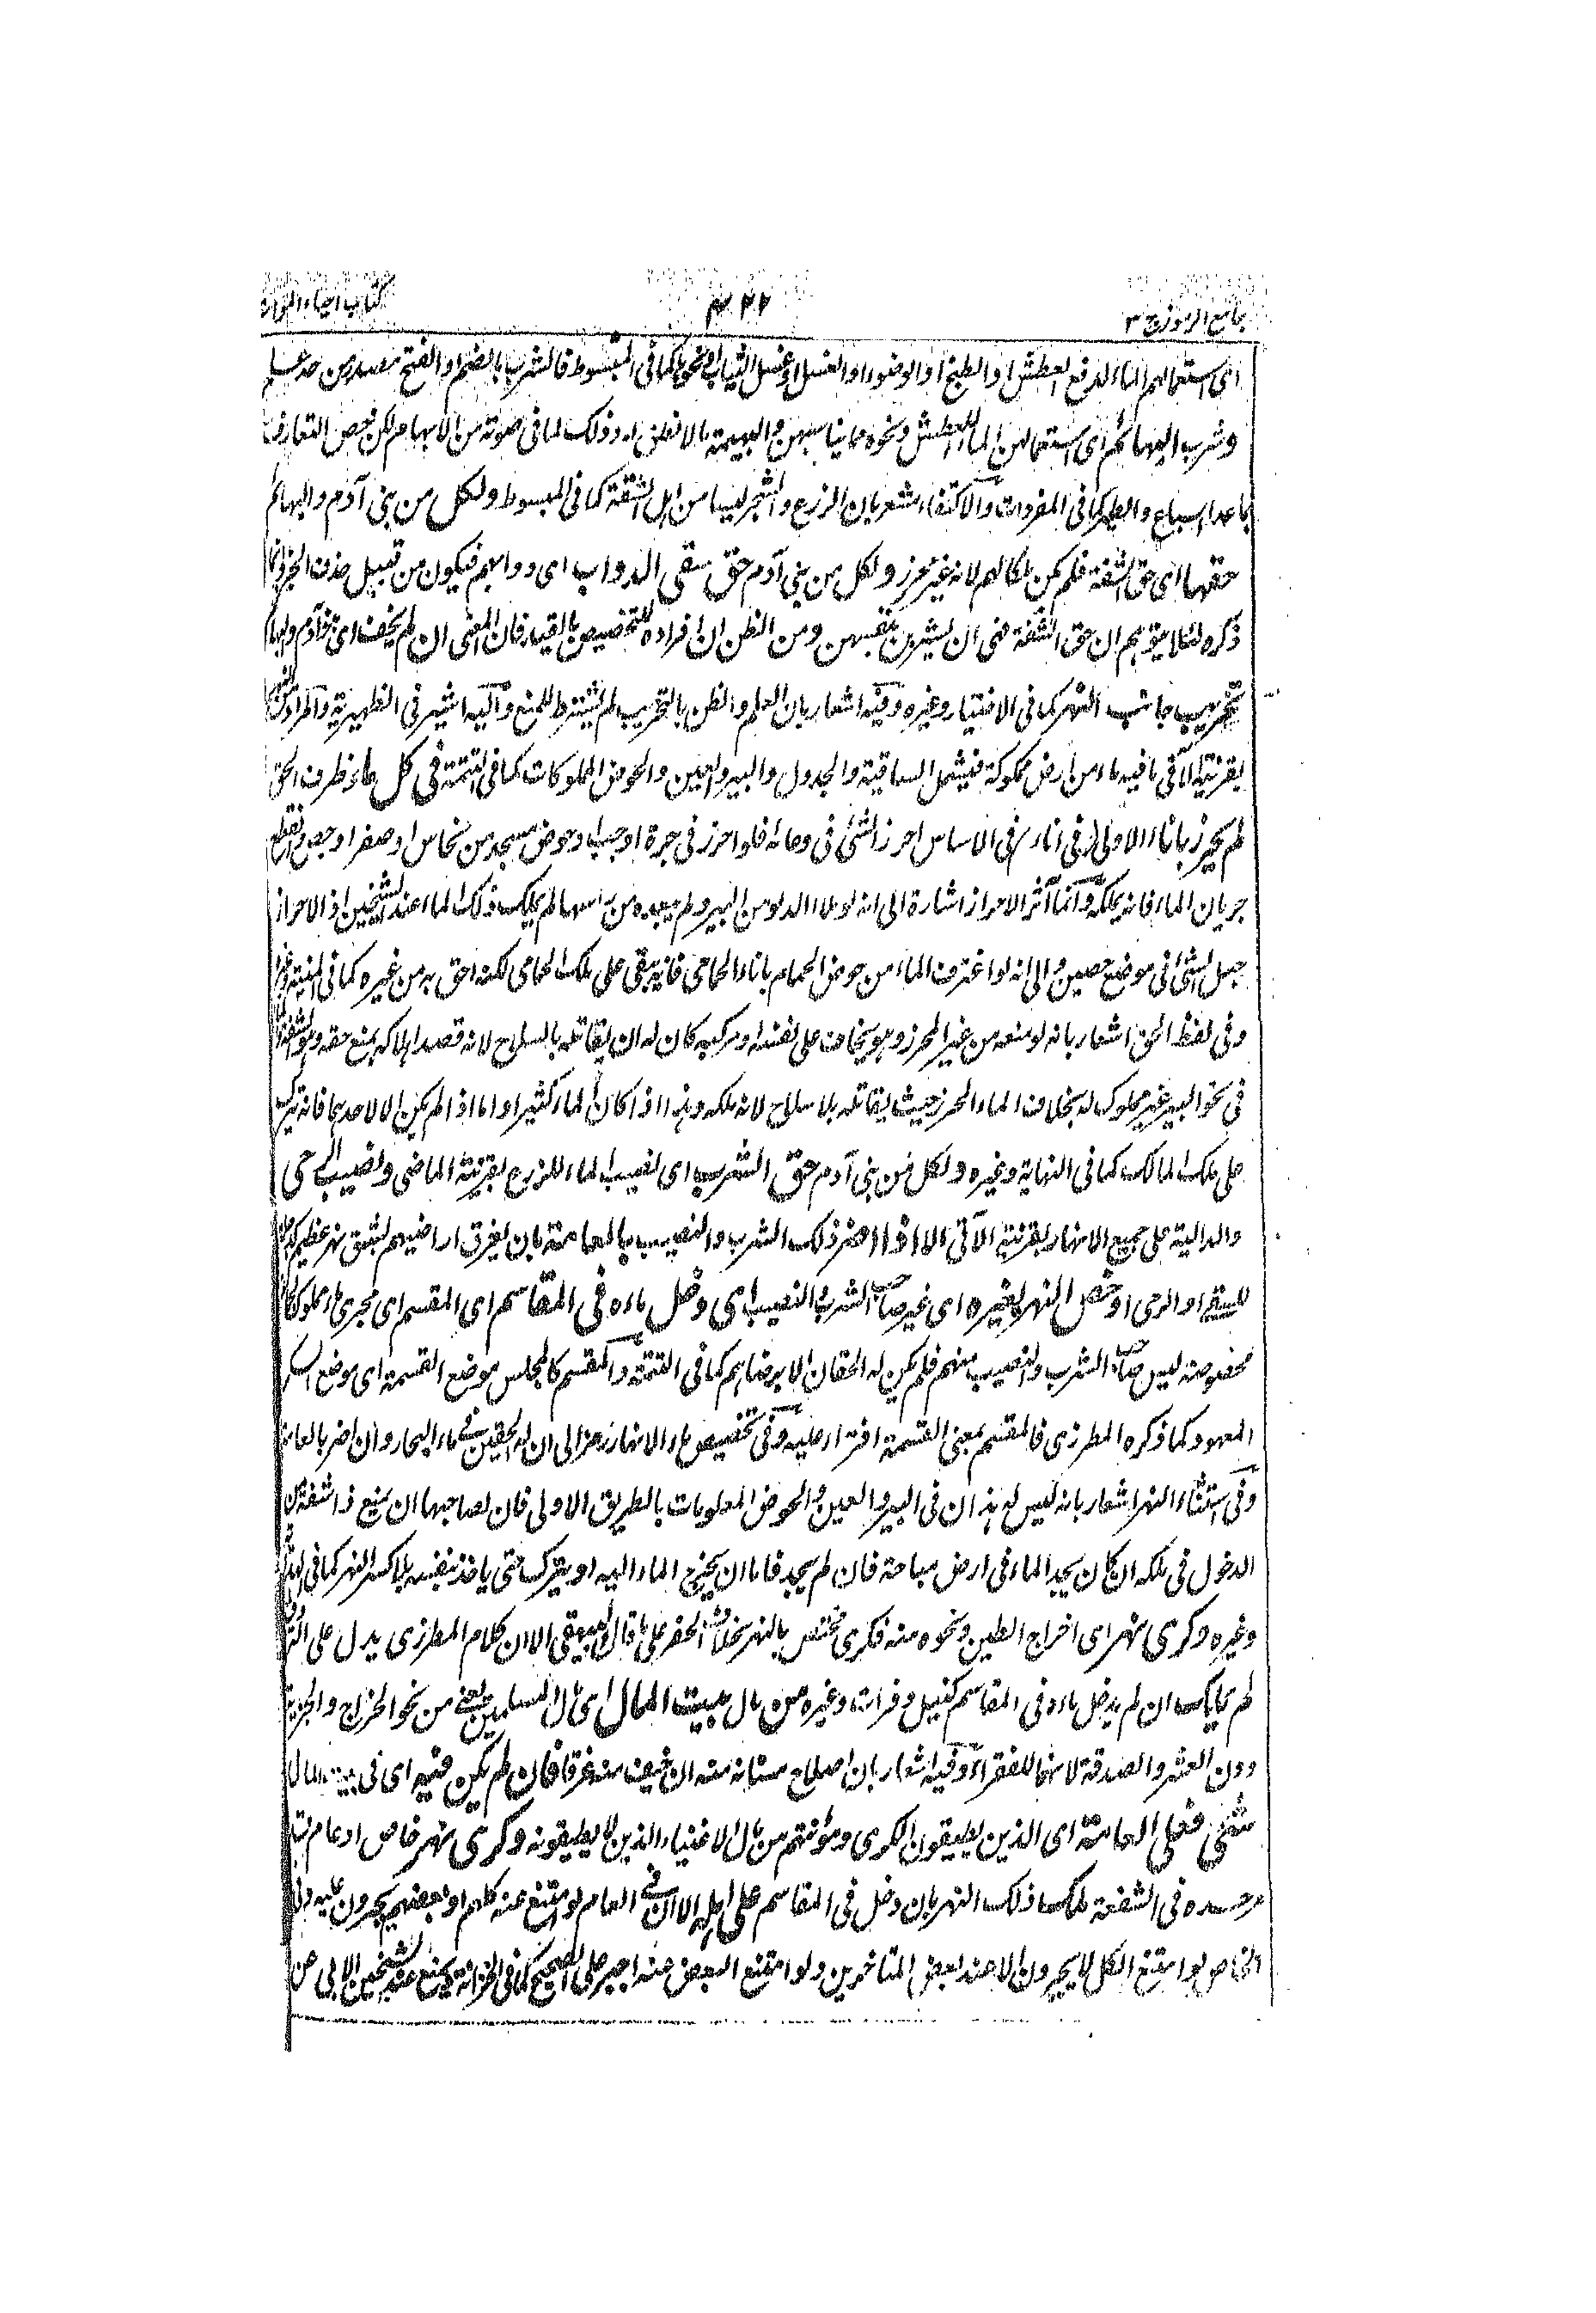 جامع الرموز ج ۳
۴۲۲
كتاب احياء الموات
اى استعمالهم الماء لدفع العطش او الطبخ او الوضوء او الغسل او غسل الثياب ونحوها كما فى المبسوط فالشرب بالضم او الفتح مصدر من حد علم
وشرب البهائم اى استعمالهن الماء للعطش ونحوه مما يناسبهن والبهيمة ما لا نطق له وذلك لما فى صوته من الابهام لكن خص التعارف
بما عدا السباع والطير كما فى المفردات والاكتفاء مشعر بان الزرع والشجر ليسا من اهل الشفة كما فى المبسوط ولكل من بنى آدم والبهائم
حقها اى حق الشفة فلم يكن ملكا لهم لانه غير محرز ولكل من بنى آدم حق سقى الدواب اى دوابهم فيكون من قبيل حذف الجزء وانما
ذكره لئلا يتوهم ان حق الشفة هى ان يشربن بنفسهن ومن الظن ان افراده للتخصيص بالقيد فان المعنى ان لم يخف اى بنو آدم والبهائم
تخريب جانب النهر كما فى الاختيار وغيره وفيه اشعار بان العلم والظن بالتخريب لم يشترط للمنع واليه اشير فى الظهيرية والمراد من النهر
بقرينة الآتى ما فيه ماء من ارض مملوكة فيشمل الساقية والجدول والبير والعين والحوض المملوكات كما فى التتمة فى كل ماء ظرف الحق
لم يحرز باناء الاولى فى اناء وفى الاساس احرز الشئ فى وعائه فلو احرز فى جرة او جب او حوض مسجد من نحاس او صفر او جص وانقطع
جريان الماء فانه يملكه وانما آثر الاحراز اشارة الى انه لو ملا الدلو من البير ولم يبعده من راسها لم يملك ذلك الماء عند الشيخين اذ الاحراز
جعل الشئ فى موضع حصين والى انه لو اغترف الماء من حوض الحمام باناء الحمامى فانه يبقى على ملك الحمامى لكنه احق به من غيره كما فى المنية وغيرها
وفى لفظ الحق اشعار بانه لو منعه من غير المحرز وهو يخاف على نفسه او مركبه كان له ان يقاتله بالسلاح لانه قصد اهلاكه بمنع حقه وهو الشفة
فى نحو البير غير مملوك له بخلاف الماء المحرز حيث يقاتله بلا سلاح لانه ملكه وهذا اذا كان الماء كثيرا واما اذا لم يكن الا لاحدهما فانه يترك
على ملك المالك كما فى النهاية وغيره ولكل من بنى آدم حق الشرب اى نصيب الماء للزرع بقرينة الماضى ونصيب الرحى
والدالية على جميع الانهار بقرينة الآتى الا اذا اضر ذلك الشرب والنصيب بالعامة بان يغرق اراضيهم بشق نهر عظيم
للسقى او الرحى او خص النهر بغيره اى غير صاحب الشرب والنصيب اى دخل ماءه فى المقاسم اى المقسم اى مجرى ماء مملوك
مخصوصة ليس صاحب الشرب والنصيب منهم فلم يكن له الحقان الا برضاهم كما فى التتمة والمقسم كالمجلس موضع القسمة اى موضع السكر
المعهود كما ذكره المطرزى فالمقسم بمعنى القسمة افتراء عليه وفى تخصيص ماء الانهار رمز الى ان له الحقين فى ماء البحار وان اضر بالعامة
وفى استثناء النهر اشعار بانه ليس له هذان فى البير والعين والحوض المملوكات بالطريق الاولى فان لصاحبها ان يمنع ذا شفة من
الدخول فى ملكه ان كان يجد الماء فى ارض مباحة فان لم يجد فاما ان يخرج الماء اليه او يترك حتى ياخذ بنفسه بلا كسر النهر كما فى
وغيره وكرى نهر اى اخراج الطين ونحوه منه فكرى مختص بالنهر بخلاف الحفر على ما قال البيهقى الا ان كلام المطرزى يدل على
لم يملك ان لم يدخل ماءه فى المقاسم كنيل وفرات وغيره من مال بيت المال اى مال المسلمين يعنى من نحو الخراج والجزية
دون العشر والصدقة لانهما للفقراء وفيه اشعار بان اصلاح مسناته منه ان خيف منه غرقا فان لم يكن فيه اى فى بيت المال
شئ فعلى العامة اى الذين يطيقون الكرى ومؤنتهم من مال الاغنياء الذين لا يطيقونه وكرى نهر خاص او عام
مر حده فى الشفعة ملك ذلك النهر بان دخل فى المقاسم على اهله الا ان فى العام لو امتنع عنه كلهم او بعضهم يجبرون عليه وفى
الخاص لو امتنع الكل لا يجبرون الا عند بعض المتاخرين ولو امتنع البعض منه اجبر على الصحيح كما فى الخزانة ويمنع عند الشيخين الابى عن